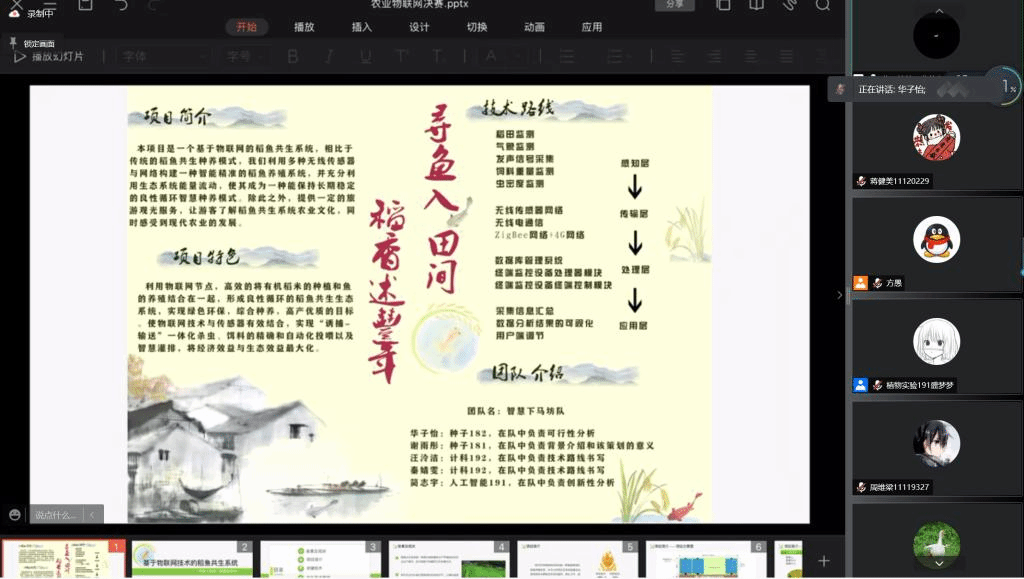 录制中
农业物联网决赛.pptx
分享
开始 播放 插入 设计 切换 动画 应用
锁定画面
播放幻灯片
字体
字号
正在讲话: 华子怡;
项目简介
本项目是一个基于物联网的稻鱼共生系统，相比于
传统的稻鱼共生种养模式，我们利用多种无线传感器
与网络构建一种智能精准的稻鱼养殖系统，并充分利
用生态系统能量流动，使其成为一种能保持长期稳定
的良性循环智慧种养模式。除此之外，提供一定的旅
游观光服务，让游客了解稻鱼共生系统农业文化，同
时感受到现代农业的发展。
项目特色
利用物联网节点，高效的将有机稻米的种植和鱼
的养殖结合在一起，形成良性循环的稻鱼共生生态
系统，实现绿色环保，综合种养，高产优质的目标
。使物联网技术与传感器有效结合，实现“诱捕-
输送”一体化杀虫、饵料的精确和自动化投喂以及
智慧灌排，将经济效益与生态效益最大化。
寻鱼入田间
稻香述豐年
技术路线
稻田监测
气象监测
发声信号采集
饲料重量监测
虫密度监测
感知层
无线传感器网络
无线电通信
ZigBee网络+4G网络
传输层
数据库管理系统
终端监控设备处理器模块
终端监控设备终端控制模块
处理层
采集信息汇总
数据分析结果的可视化
用户端调节
应用层
团队介绍
团队名：智慧下马坊队
华子怡：种子182，在队中负责可行性分析
谢雨彤：种子181，在队中负责背景介绍和该策划的意义
汪泠洁：计科192，在队中负责技术路线书写
秦婧雯：计科192，在队中负责技术路线书写
简志宇：人工智能191，在队中负责创新性分析
说点什么...
蒋健美11120229
方愚
植物实验191鹿梦梦
周维梁11119327
1
2
基于物联网技术的稻鱼共生系统
3
4
5
6